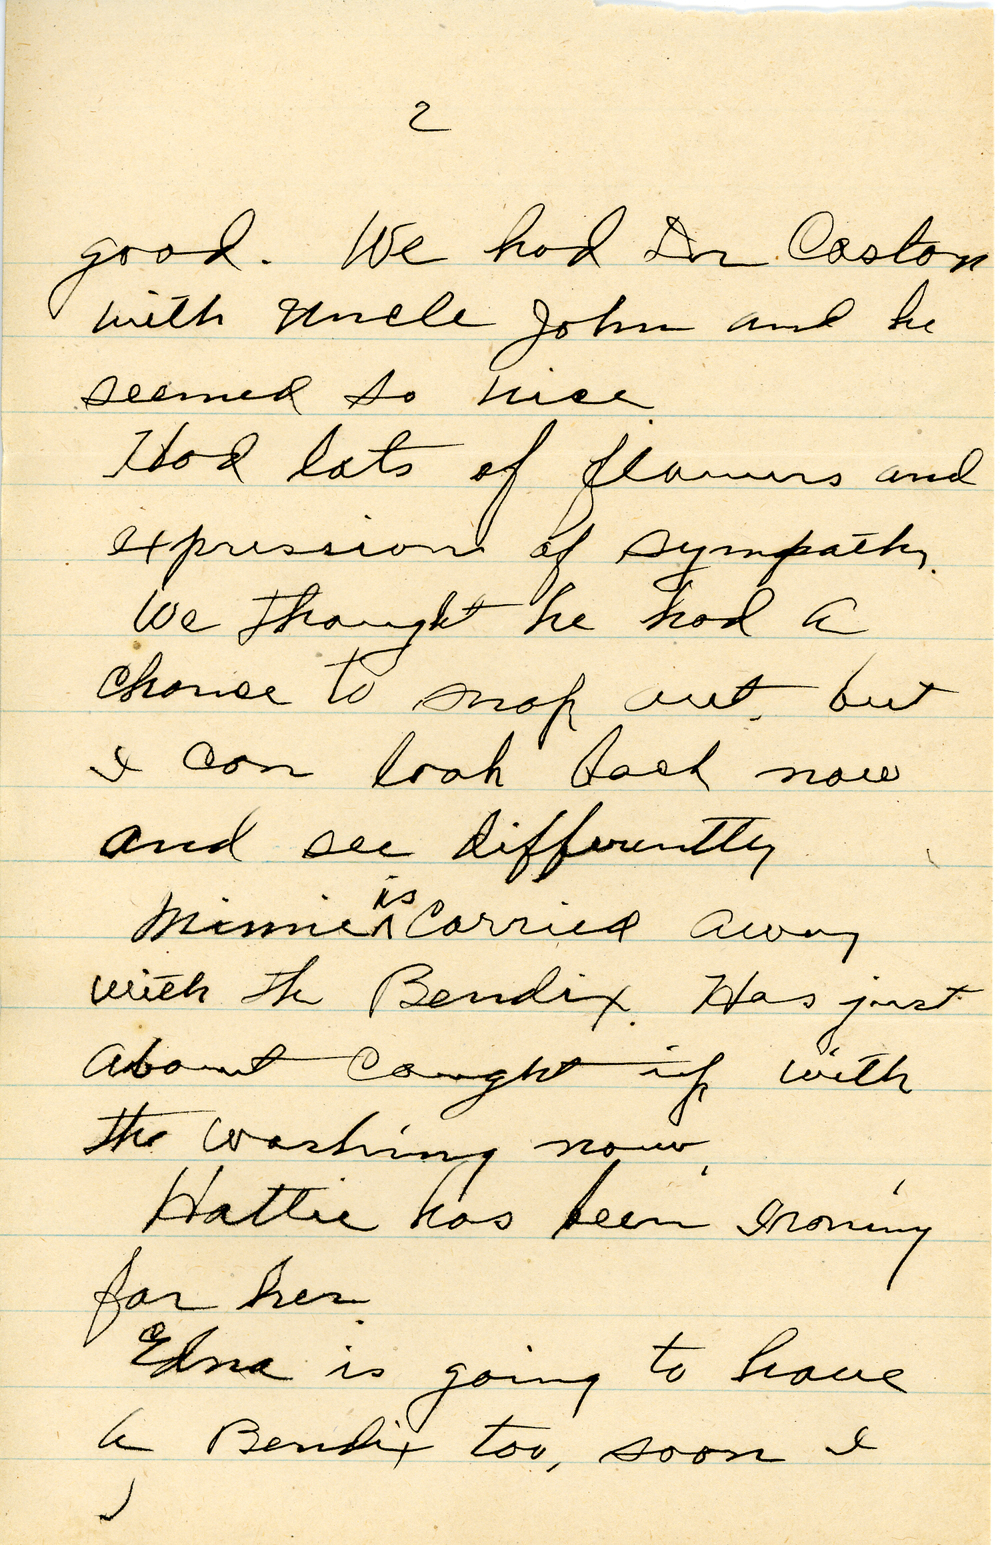 2
good. We had Dr Caston
with Uncle John and he
seemed so nice.
Had lots of flowers and
expression of sympathy.
We thought he had a
chance to snap out, but
I can look back now
and see differently
Minnie is carried away
with the Bendix. Has just
about caught up with
the washing now,
Hattie has been Ironing
for her.
Edna is going to have
a Bendix too, soon I